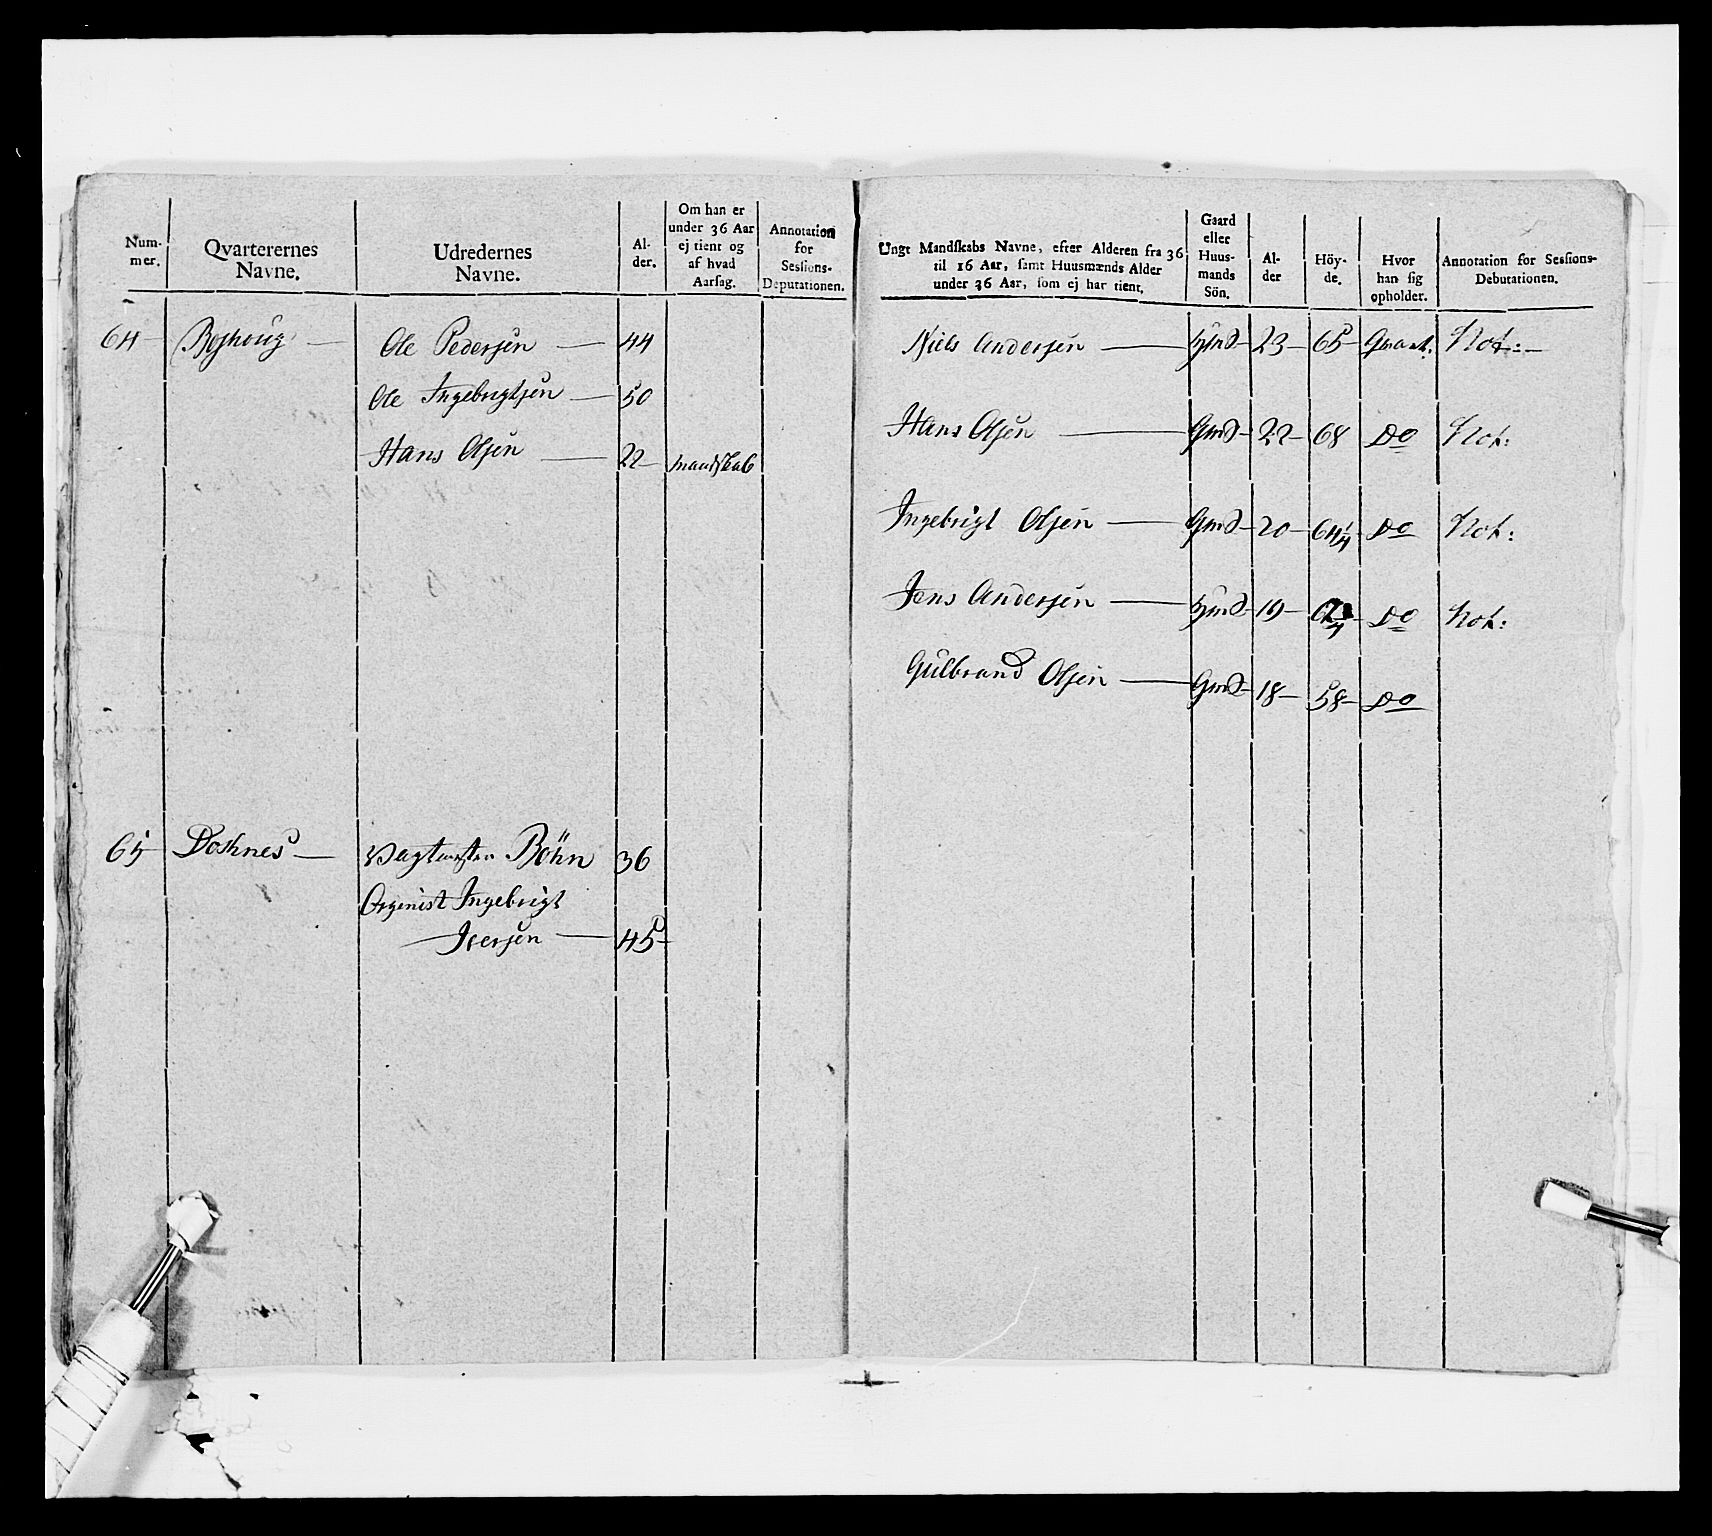 Num-
mer.
Qvarterernes
Navne.
Udredernes
Navne.
Al-
der.
Om han er
under 36 Aar
ej tient og
af hvad
Aarsag.
Annotation
for
Sessions-
Deputationen.
64 Boshoug Ole Pedersen 44
Ole Ingebrigtsen 50
Hans Olsen 22 mandskab
65 Doknes Vagtmester Böhn 36
Orgenist Ingebrigt
Iversen 45
Ungt Mandskabs Navne, efter Alderen fra 36
til 16 Aar, samt Huusmænds Alder
under 36 Aar, som ej har tient.
Gaard
eller
Huus-
mands
Sön.
Al-
der
Höy-
de.
Hvor
han sig
opholder.
Annotation for Sessions-
Debutationen.
Niels Andersen 23 65 Not:
Hans Olsen Gmd 22 68 Do Not:
Ingebrigt Olsen Gmd 20 64 1/4 Do Not:
Jens Andersen 19 Do Not:
Gulbrand Olsen Gmd 18 58 Do